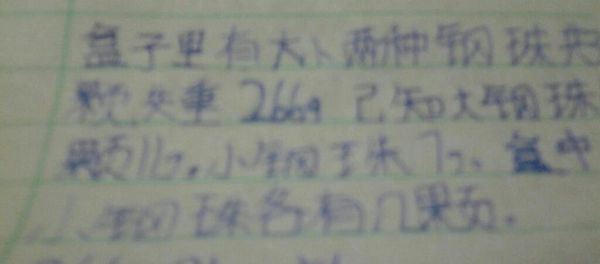 盒子里有大小两种钢珠共
颗共重266g已知大钢珠
颗11g,小钢珠7g、盒中
小钢珠各有几颗.